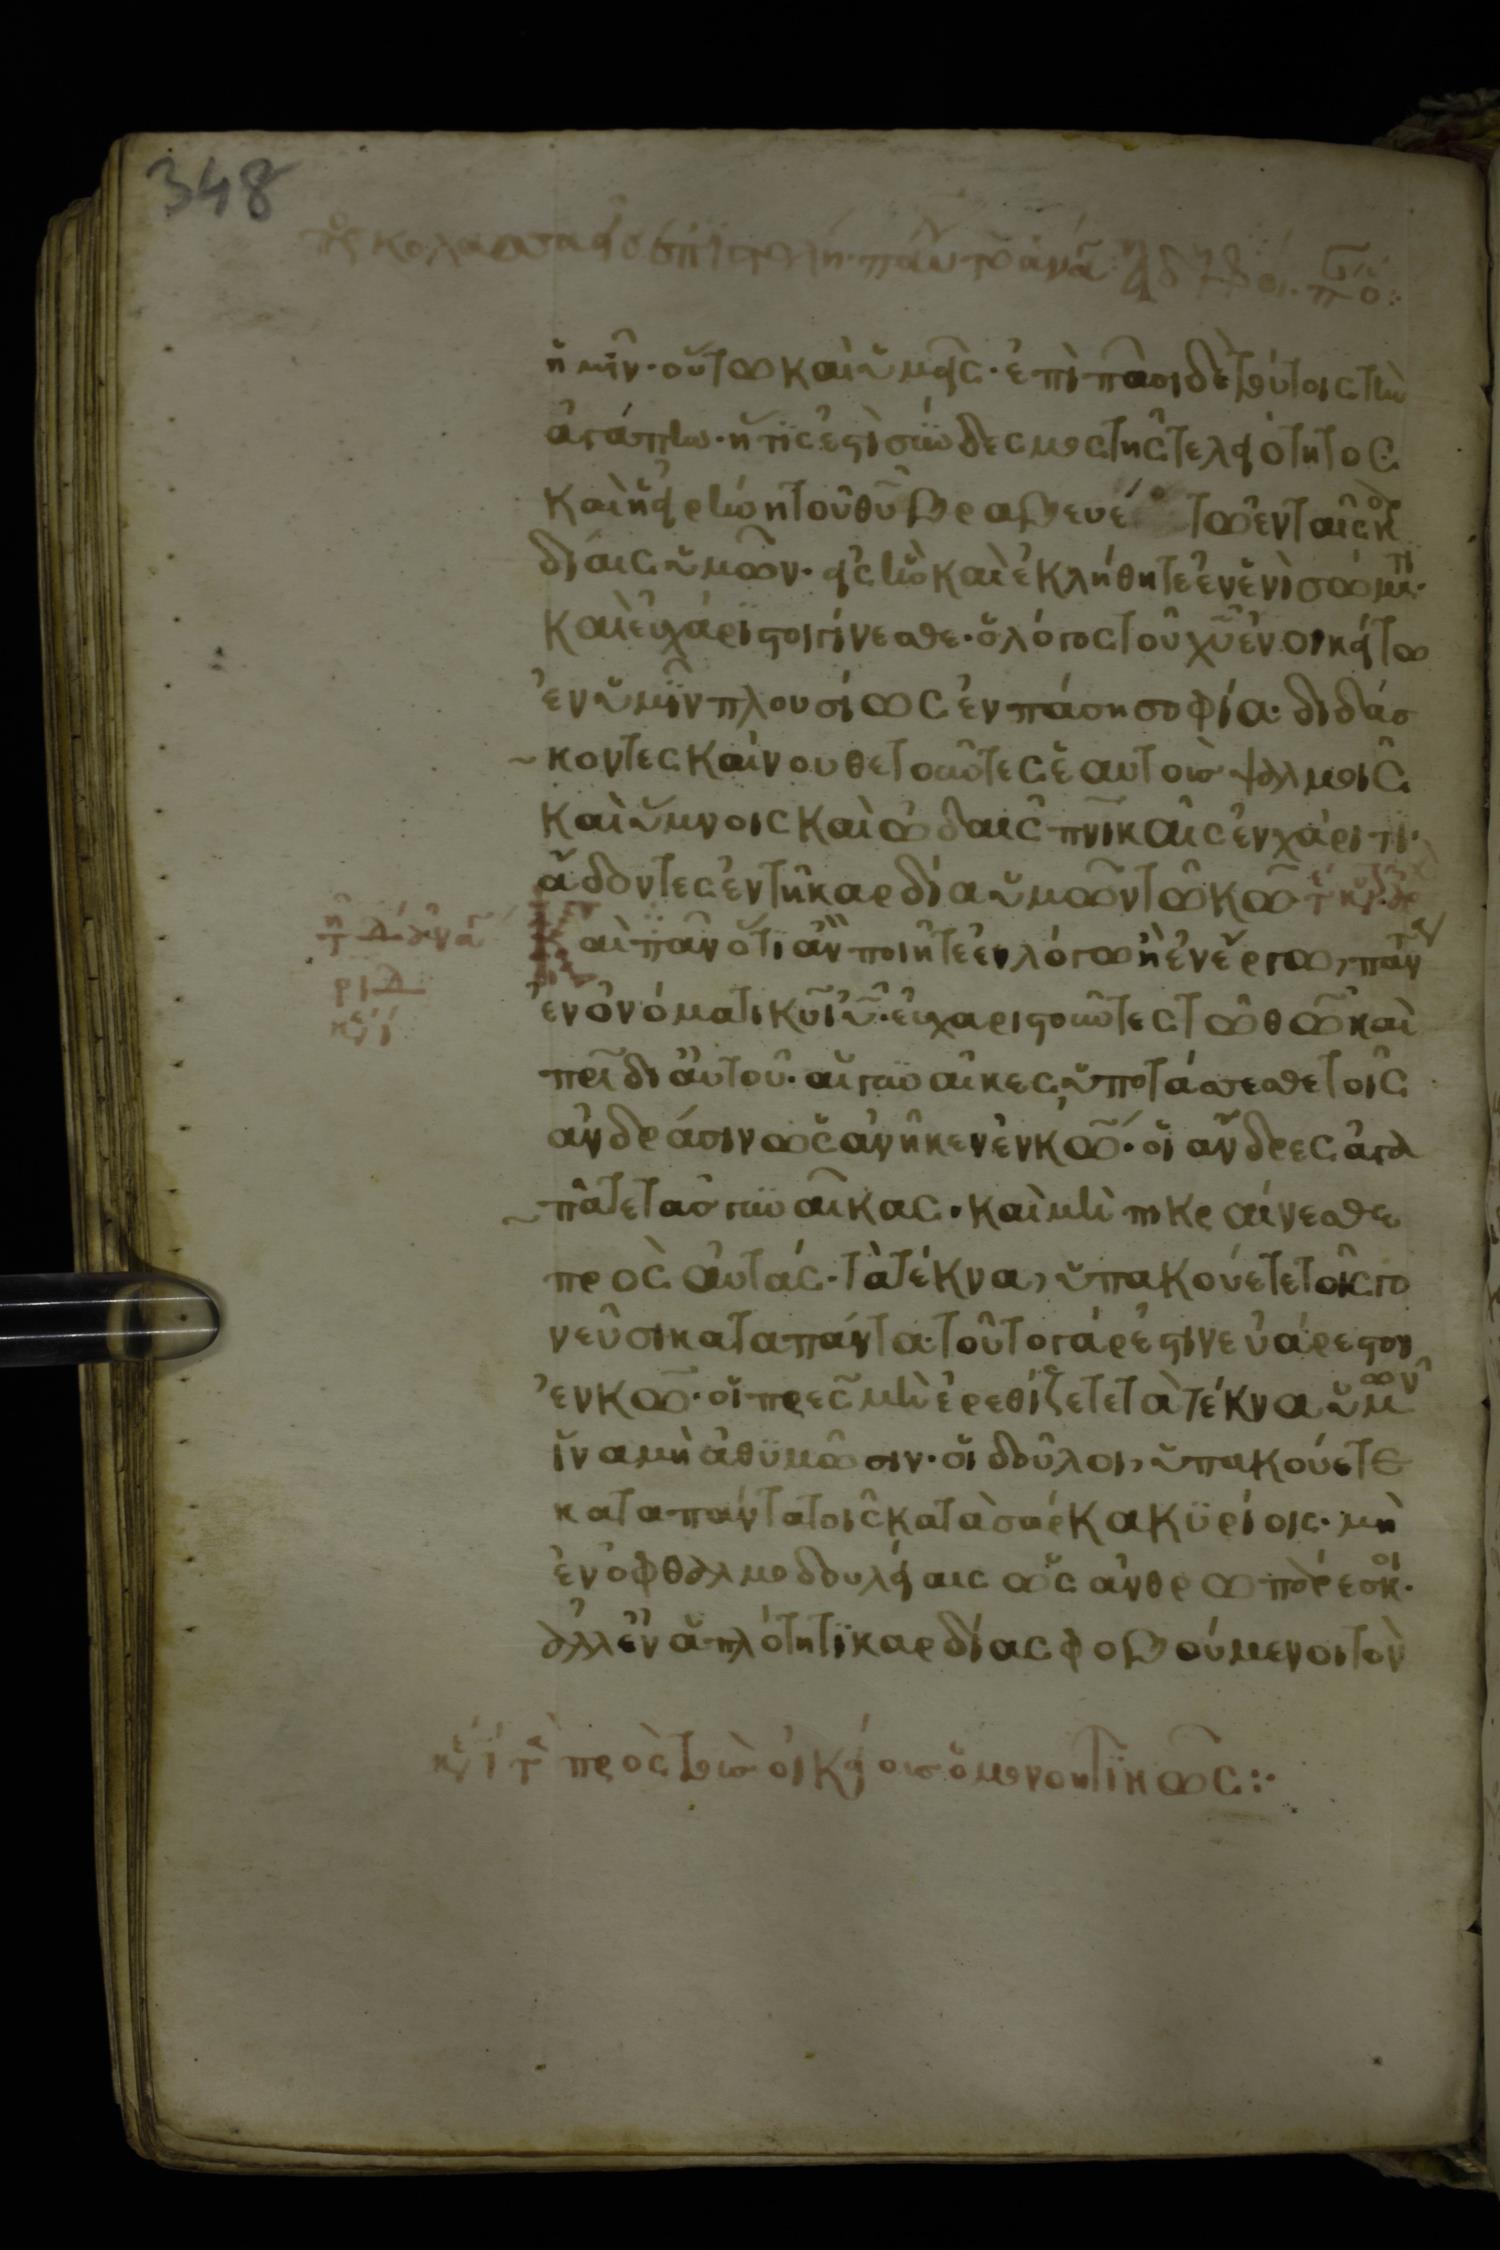 348
πρὸς κολασσαεῖς ἐπιστολὴ παύλου
ἡμῖν· οὕτω καὶ ὑμεῖς· ἐπὶ πᾶσι δὲ τούτοις τὴν
ἀγάπην· ἥτις ἐστὶ σύνδεσμος τῆς τελειότητος
καὶ ἡ εἰρήνη τοῦ θ̅υ̅ βραβευέτω ἐν ταῖς καρ
δίαις ὑμῶν· εἰς ἣν καὶ ἐκλήθητε ἐν ἑνὶ σώματι·
καὶ εὐχάριστοι γίνεσθε· ὁ λόγος τοῦ χ̅υ̅ ἐνοικείτω
ἐν ὑμῖν πλουσίως ἐν πάσῃ σοφίᾳ· διδάσ
κοντες καὶ νουθετοῦντες ἑαυτοὺς ψαλμοῖς
καὶ ὕμνοις καὶ ᾠδαῖς π̅ν̅ικαῖς ἐν χάριτι·
ᾄδοντες ἐν τῇ καρδίᾳ ὑμῶν τῷ κ̅ω̅·
καὶ πᾶν ὅτι ἂν ποιῆτε ἐν λόγῳ ἢ ἐν ἔργῳ, πάντα
ἐν ὀνόματι κ̅υ̅ ι̅υ̅· εὐχαριστοῦντες τῷ θ̅ω̅ καὶ
π̅ρ̅ι̅ δι' αὐτοῦ· αἱ γυναῖκες ὑποτάσσεσθε τοῖς
ἀνδράσιν ὡς ἀνῆκεν ἐν κ̅ω̅· οἱ ἄνδρες ἀγα
πᾶτε τὰς γυναῖκας· καὶ μὴ πικραίνεσθε
πρὸς αὐτάς· τὰ τέκνα, ὑπακούετε τοῖς γο
νεῦσι κατα πάντα· τοῦτο γάρ ἐστιν εὐάρεστον
ἐν κ̅ω̅· οἱ π̅ρ̅ε̅ς̅ μὴ ἐρεθίζετε τὰ τέκνα ὑμῶν
ἵνα μὴ ἀθυμῶσιν· οἱ δοῦλοι, ὑπακούετε
κατα πάντα τοῖς κατὰ σάρκα κυρίοις· μὴ
ἐν ὀφθαλμοδουλείαις ὡς ἀνθρωπάρεσκοι·
ἀλλ' ἐν ἁπλότητι καρδίας φοβούμενοι τὸν
πρὸς τοὺς οἰκείους ὁμονοητικῶς:·